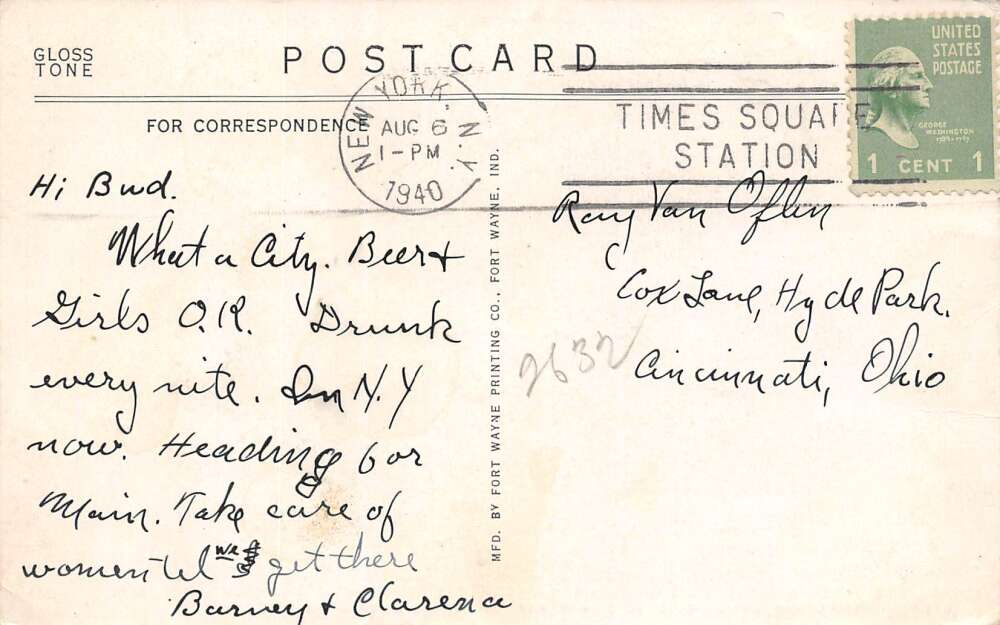 GLOSS
TONE
POST CARD
FOR CORRESPONDENCE
NEW YORK, N.Y.
AUG 6
1-PM
1940
TIMES SQUARE
STATION
UNITED
STATES
POSTAGE
GEORGE
WASHINGTON
1789-1797
1 CENT 1
Hi Bud.
What a City. Beer +
Girls O.K. Drunk
every nite. In N.Y
now. Heading for
Main. Take care of
women til we get there
Barney + Clarena
MFD. BY FORT WAYNE PRINTING CO., FORT WAYNE, IND.
Ray Van
Cox Lane, Hyde Park.
Cincinnati, Ohio
2632